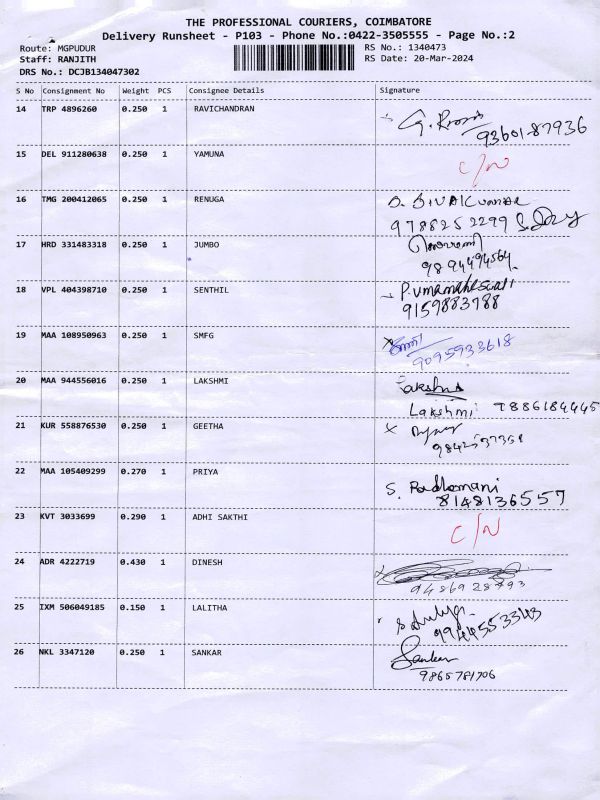 THE PROFESSIONAL COURIERS, COIMBATORE
Delivery Runsheet - P103 - Phone No.:0422-3505555 - Page No.:2
Route: MGPUDUR RS No.: 1340473
Staff: RANJITH RS Date: 20-Mar-2024
DRS No.: DCJB134047302
S No Consignment No Weight PCS Consignee Details Signature
14 TRP 4896260 0.250 1 RAVICHANDRAN
9360187936
15 DEL 911280638 0.250 1 YAMUNA C/N
16 TMG 200412065 0.250 1 RENUGA
9788252299
17 HRD 331483318 0.250 1 JUMBO
9894494564
18 VPL 404398710 0.250 1 SENTHIL P.Umamaheswari
9159883788
19 MAA 108950963 0.250 1 SMFG
9095933618
20 MAA 944556016 0.250 1 LAKSHMI
Lakshmi 7886184445
21 KUR 558876530 0.250 1 GEETHA
22 MAA 105409299 0.270 1 PRIYA S. Padhomani
8148136557
23 KVT 3033699 0.290 1 ADHI SAKTHI C/N
24 ADR 4222719 0.430 1 DINESH
9486928793
25 IXM 506049185 0.150 1 LALITHA
26 NKL 3347120 0.250 1 SANKAR Sankar
9865781706